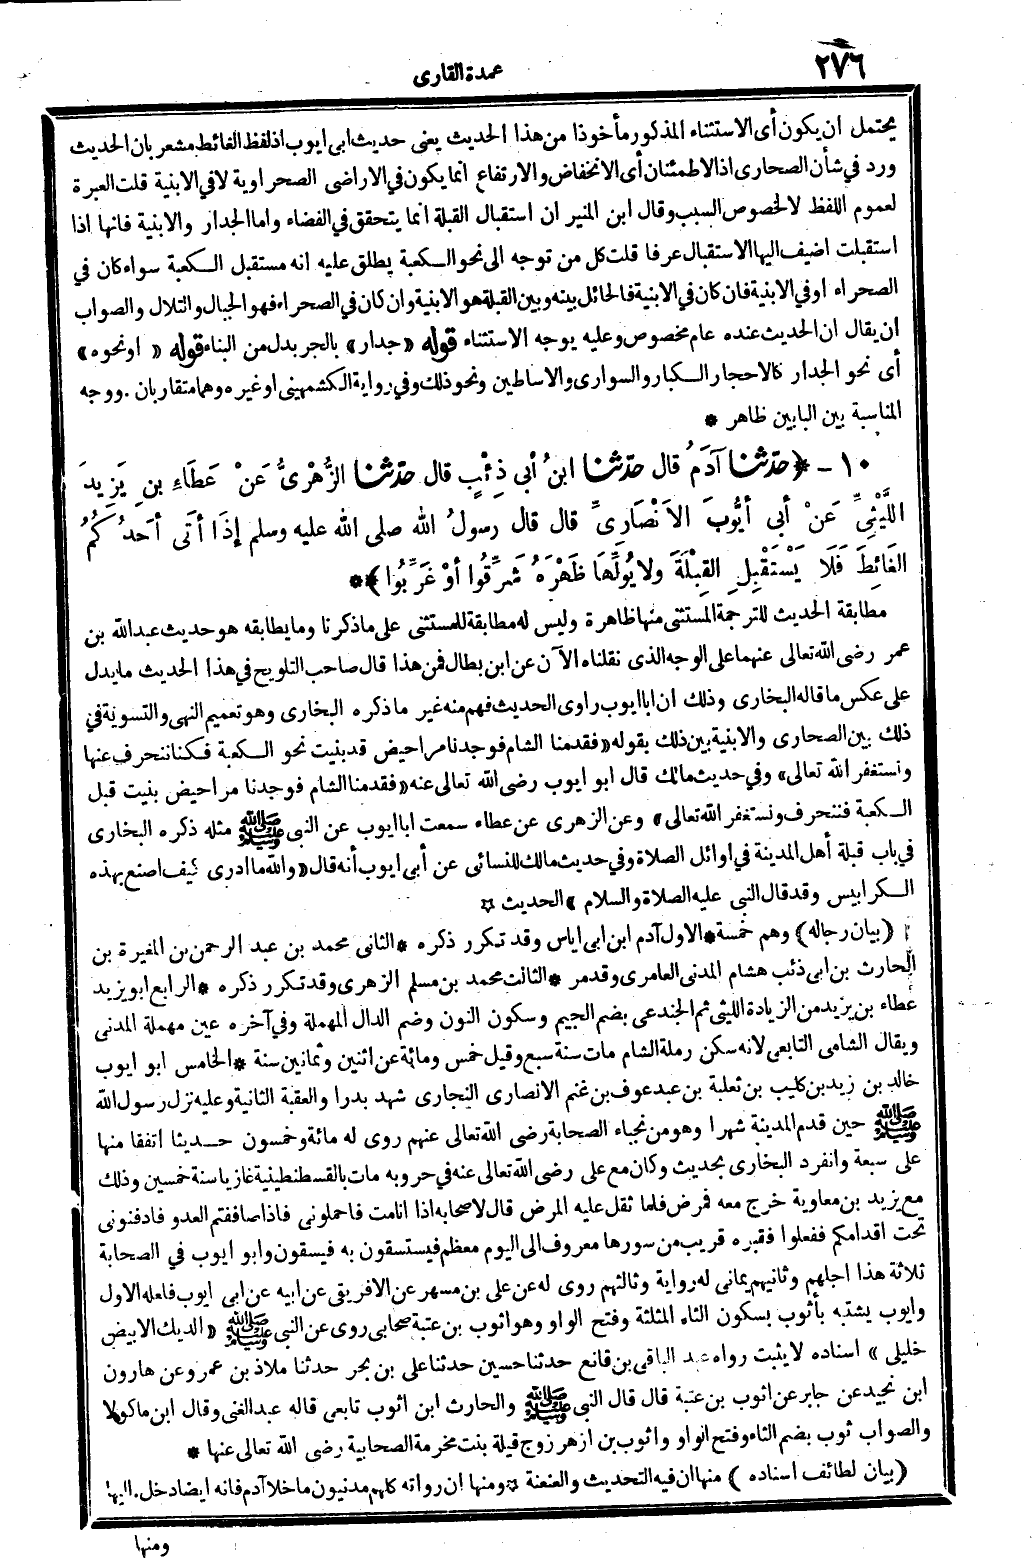 ٢٧٦
عمدة القارى
يحتمل ان يكون أى الاستثناء المذكور مأخوذا من هذا الحديث يعنى حديث ابى ايوب اذ لفظ الغائط مشعر بان الحديث
ورد في شأن الصحارى اذ الاطمئنان أى الانخفاض والارتفاع انما يكون في الاراضى الصحراوية لا في الابنية قلت العبرة
لعموم اللفظ لا لخصوص السبب وقال ابن المنير ان استقبال القبلة انما يتحقق في الفضاء واما الجدار والابنية فانها اذا
استقبلت اضيف اليها الاستقبال عرفا قلت كل من توجه الى نحو الكعبة يطلق عليه انه مستقبل الكعبة سواء كان في
الصحراء او في الابنية فان كان في الابنية فالحائل بينه وبين القبلة هو الابنية وان كان في الصحراء فهو الجبال والتلال والصواب
ان يقال ان الحديث عنده عام مخصوص وعليه يوجه الاستثناء قوله « جدار» بالجر بدل من البناء قوله « او نحوه»
أى نحو الجدار كالاحجار الكبار والسوارى والاساطين ونحو ذلك وفي رواية الكشمهينى او غيره وهما متقاربان . ووجه
المناسبة بين البابين ظاهر *
١٠ - ﴿ حَدَّثَنَا آدَمُ قال حَدَّثَنَا ابنُ أبى ذِئْبٍ قال حَدَّثَنَا الزُّهْرِىُّ عَنْ عَطَاءِ بنِ يَزِيدَ
اللَّيْثِىِّ عَنْ أبى أيُّوبَ الاَنْصَارِىِّ قال قال رسولُ الله صلى الله عليه وسلم إذَا أتَى أحَدُكُمُ
الغَائِطَ فَلاَ يَسْتَقْبِلِ القِبْلَةَ ولا يُوَلِّهَا ظَهْرَهُ شَرِّقُوا أوْ غَرِّبُوا ﴾*
مطابقة الحديث للترجمة المستثنى منها ظاهرة وليس له مطابقة للمستثنى على ما ذكرنا وما يطابقه هو حديث عبد الله بن
عمر رضى الله تعالى عنهما على الوجه الذى نقلناه الآن عن ابن بطال فمن هذا قال صاحب التلويح في هذا الحديث ما يدل
على عكس ما قاله البخارى وذلك ان ابا ايوب راوى الحديث فهم منه غير ما ذكره البخارى وهو تعميم النهى والتسوية في
ذلك بين الصحارى والابنية بين ذلك بقوله « فقدمنا الشام فوجدنا مراحيض قد بنيت نحو الكعبة فكنا ننحرف عنها
ونستغفر الله تعالى» وفي حديث مالك قال ابو ايوب رضى الله تعالى عنه « فقدمنا الشام فوجدنا مراحيض بنيت قبل
الكعبة فننحرف ونستغفر الله تعالى» وعن الزهرى عن عطاء سمعت ابا ايوب عن النبى ﷺ مثله ذكره البخارى
في باب قبلة أهل المدينة في اوائل الصلاة وفي حديث مالك للنسائى عن أبى ايوب أنه قال « والله ما ادرى كيف اصنع بهذه
الكرابيس وقد قال النبى عليه الصلاة والسلام » الحديث *
( بيان رجاله ) وهم خمسة * الاول آدم ابن ابى اياس وقد تكرر ذكره * الثانى محمد بن عبد الرحمن بن المغيرة بن
الحارث بن ابى ذئب هشام المدنى العامرى وقد مر * الثالث محمد بن مسلم الزهرى وقد تكرر ذكره * الرابع ابو يزيد
عطاء بن يزيد من الزيادة الليثى ثم الجندعى بضم الجيم وسكون النون وضم الدال المهملة وفي آخره عين مهملة المدنى
ويقال الشامى التابعى لانه سكن رملة الشام مات سنة سبع وقيل خمس ومائة عن اثنين وثمانين سنة * الخامس ابو ايوب
خالد بن زيد بن كليب بن ثعلبة بن عبد عوف بن غنم الانصارى النجارى شهد بدرا والعقبة الثانية وعليه نزل رسول الله
ﷺ حين قدم المدينة شهرا وهو من نجباء الصحابة رضى الله تعالى عنهم روى له مائة وخمسون حديثا اتفقا منها
على سبعة وانفرد البخارى بحديث وكان مع على رضى الله تعالى عنه في حروبه مات بالقسطنطينية غازيا سنة خمسين وذلك
مع يزيد بن معاوية خرج معه فمرض فلما ثقل عليه المرض قال لاصحابه اذا انا مت فاحملونى فاذا صاففتم العدو فادفنونى
تحت اقدامكم ففعلوا فقبره قريب من سورها معروف الى اليوم معظم فيستسقون به فيسقون وابو ايوب في الصحابة
ثلاثة هذا اجلهم وثانيهم يمانى له رواية وثالثهم روى له عن على بن مسهر عن الافريقى عن ابيه عن ابى ايوب فلعله الاول
وايوب يشتبه بأثوب بسكون الثاء المثلثة وفتح الواو وهو اثوب بن عتبة صحابى روى عن النبى ﷺ « الديك الابيض
خليلى » اسناده لا يثبت رواه عبد الباقى بن قانع حدثنا حسين حدثنا على بن بحر حدثنا ملاذ بن عمرو عن هارون
ابن نجيد عن جابر عن اثوب بن عتبة قال قال النبى ﷺ والحارث ابن اثوب تابعى قاله عبد الغنى وقال ابن ماكولا
والصواب ثوب بضم الثاء وفتح الواو واثوب بن ازهر زوج قيلة بنت مخرمة الصحابية رضى الله تعالى عنها *
( بيان لطائف اسناده ) منها ان فيه التحديث والعنعنة * ومنها ان رواته كلهم مدنيون ما خلا آدم فانه ايضا دخل . اليها
ومنها